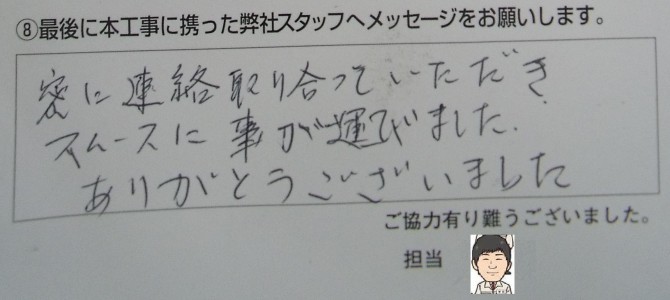 ⑧最後に本工事に携った弊社スタッフへメッセージをお願いします。
密に連絡取り合っていただき
スムースに事が運びました.
ありがとうございました
ご協力有り難うございました。
担当